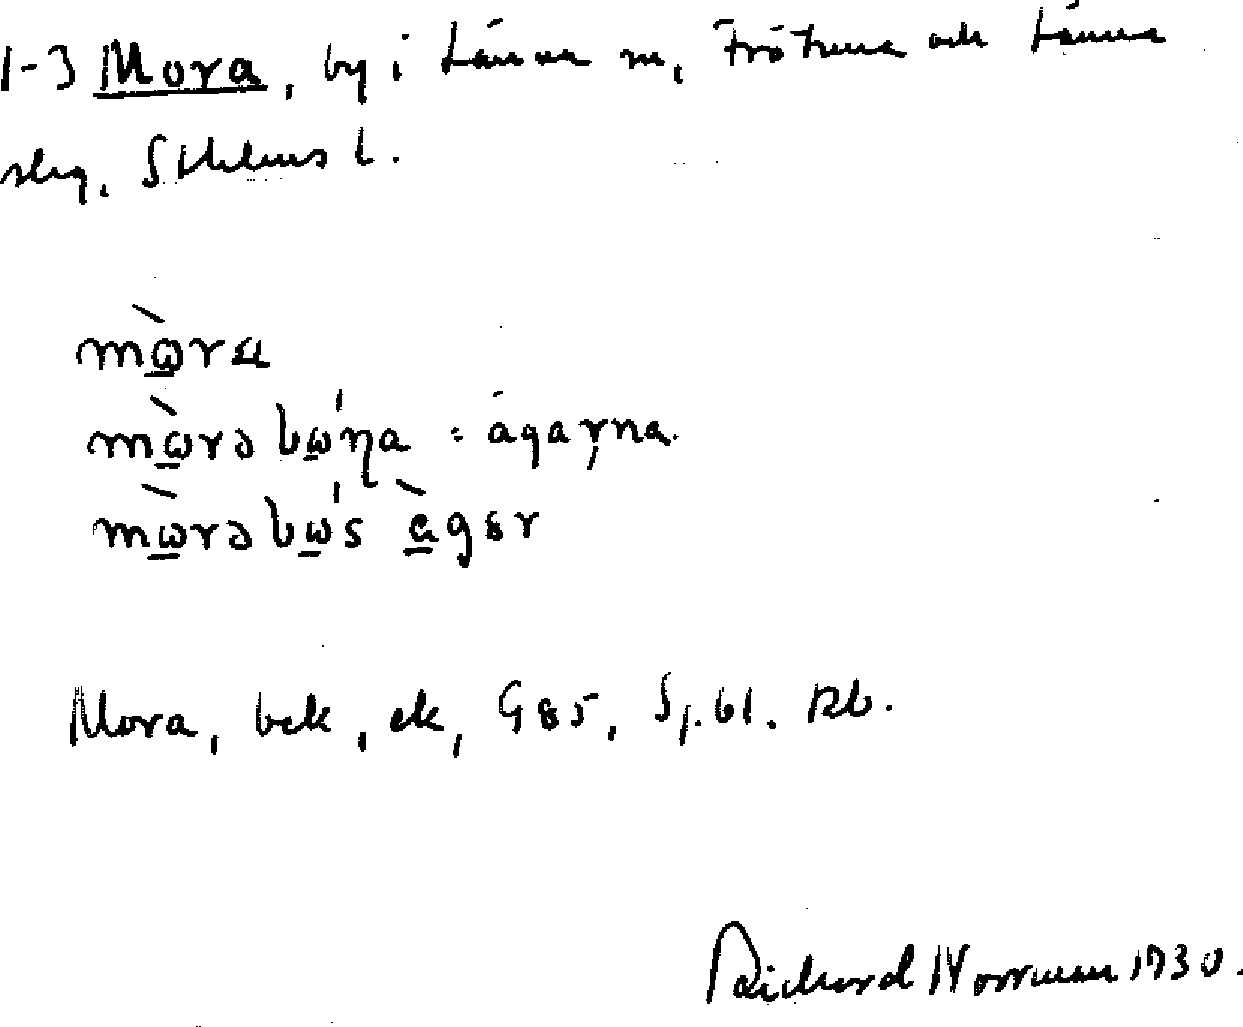 1-3 Mora, by i Länna sn, Frötuna och Länna
slg, Sthlms l.
mὼra
mὼrə bώŋa : ágaṛna.
mὼrə bώs àgər
Mora, bek, ek, G85, Sj. bl. Rb.
Richard Norrman 1930.